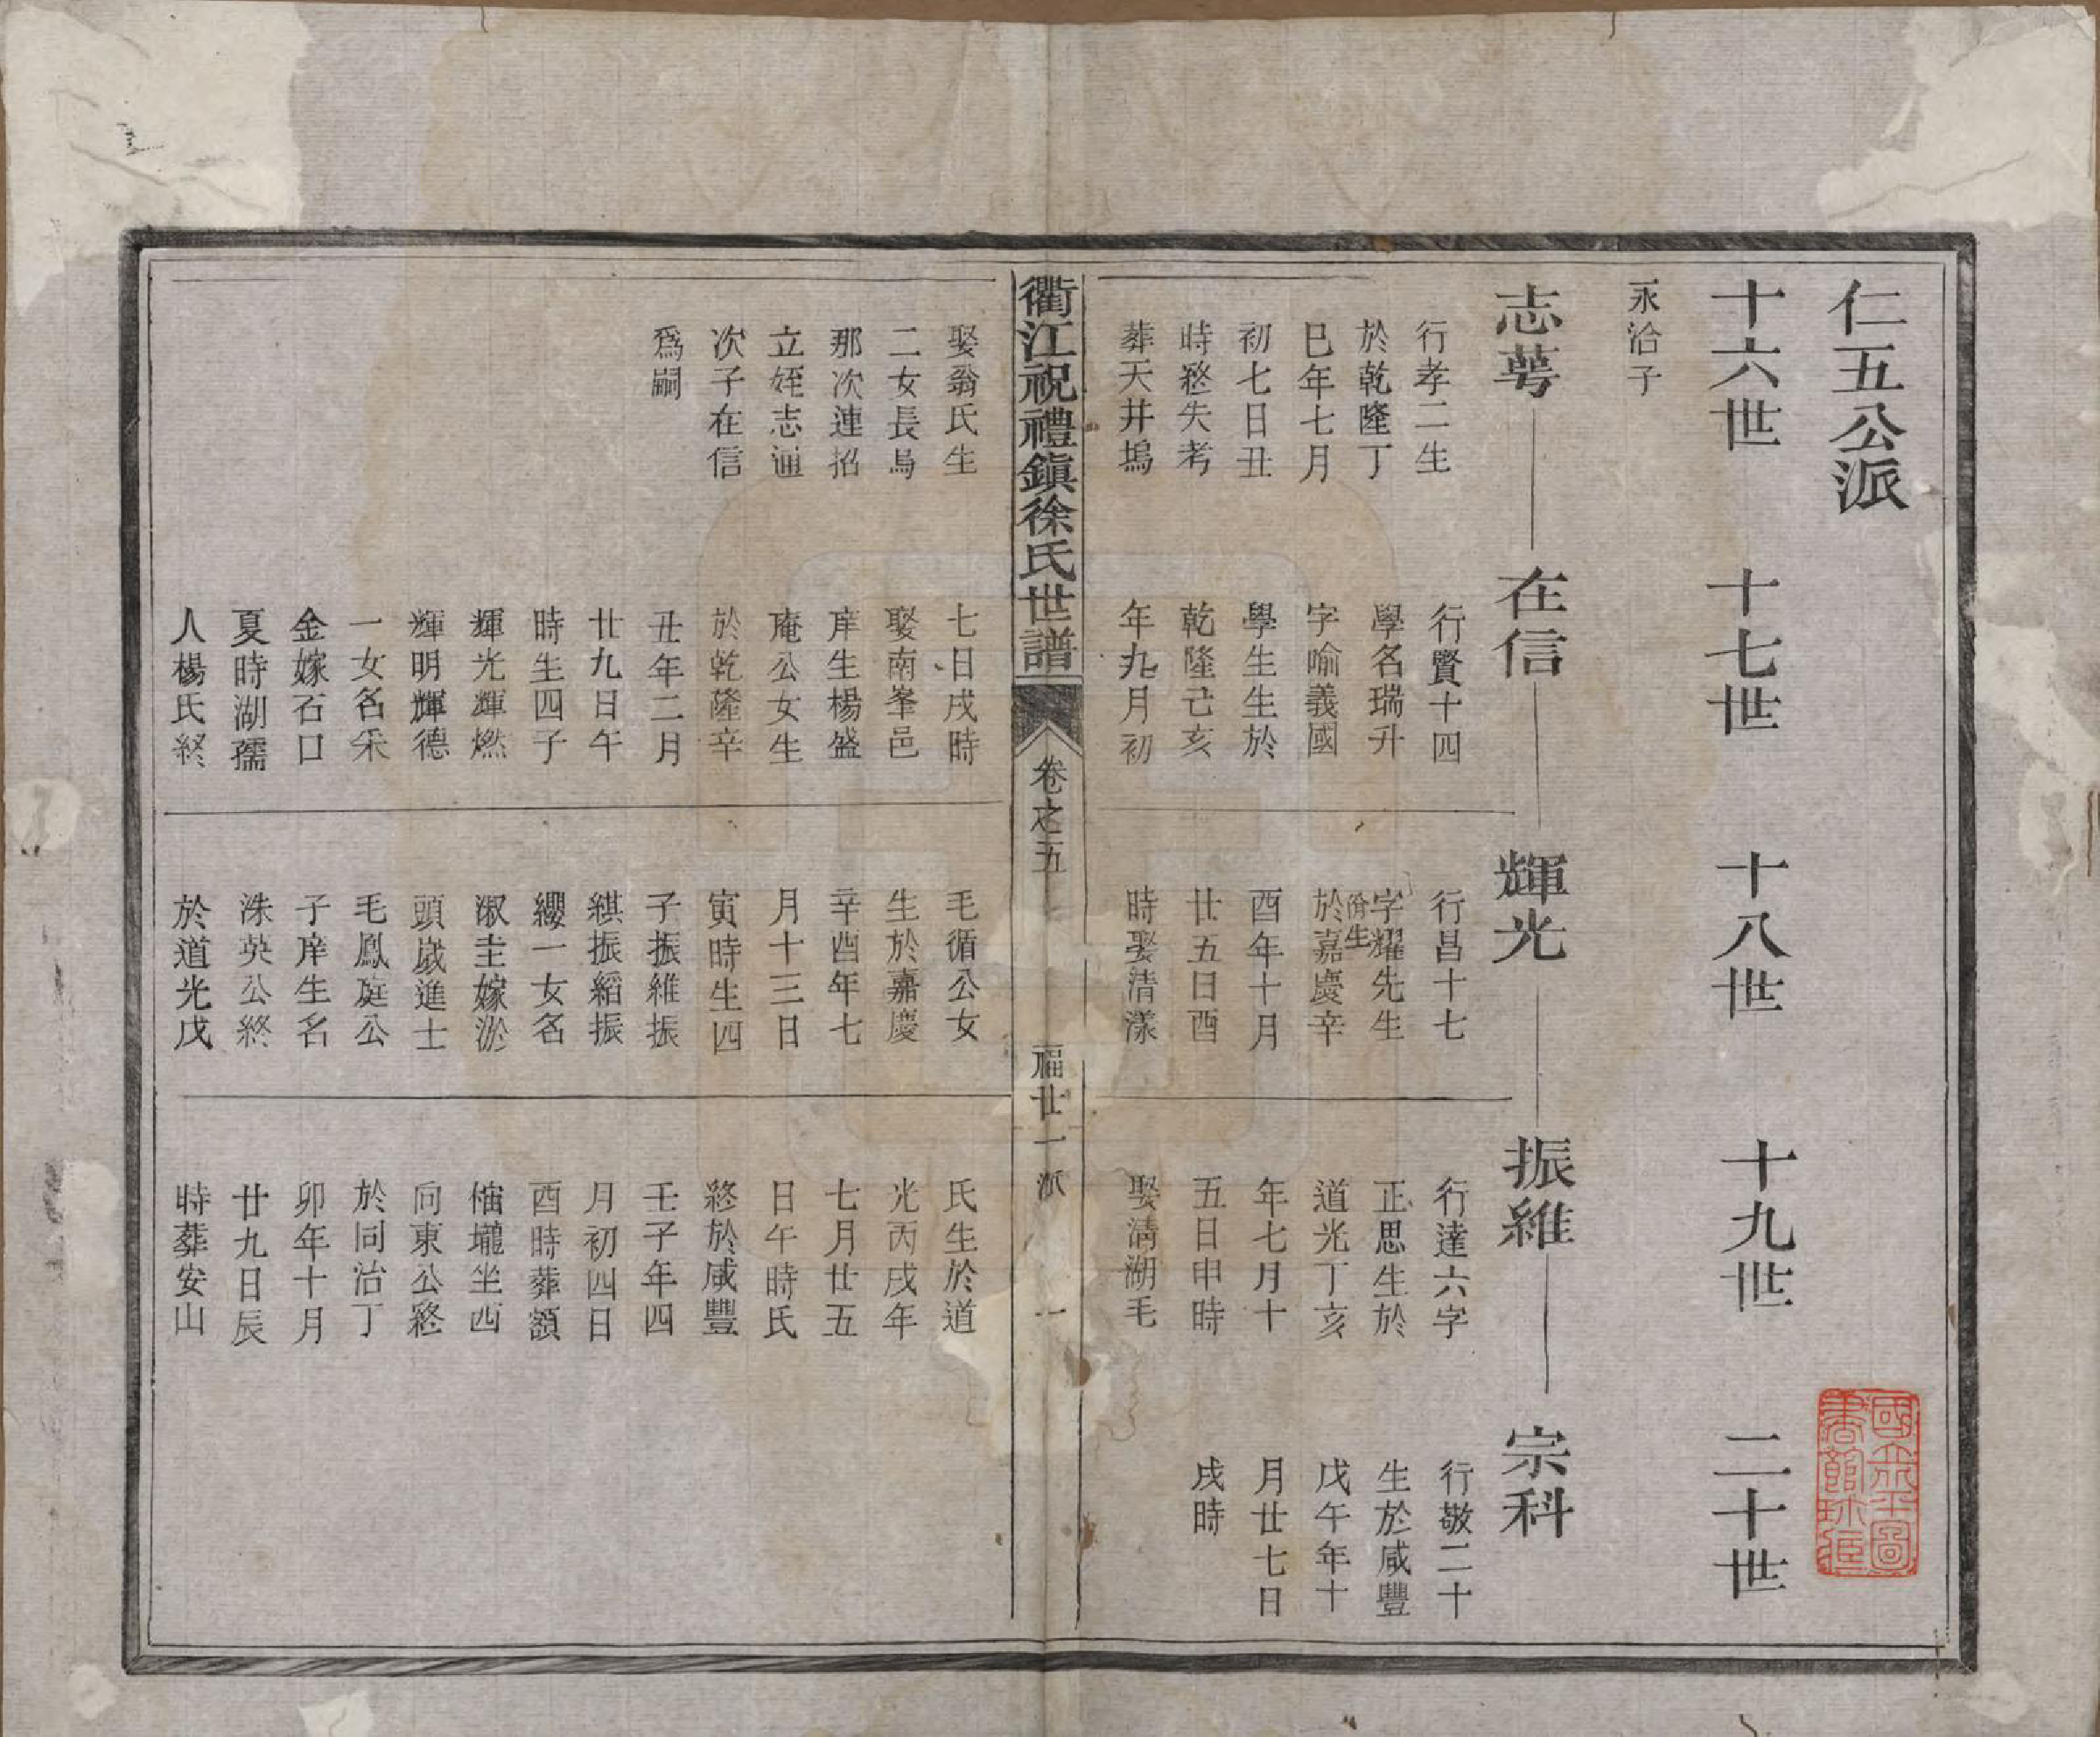 仁五公派
十六世
十七世
十八世
十九世
二十世
永洽子
志萼
行孝二生
於乾隆丁
巳年七月
初七日丑
時終失考
葬天井塢
在信
行賢十四
學名瑞升
字喻義國
學生生於
乾隆己亥
年九月初
輝光
行昌十七
字耀先生
佾生
於嘉慶辛
酉年十月
廿五日酉
時娶清漾
振維
行達六字
正思生於
道光丁亥
年七月十
五日申時
娶清湖毛
宗科
行敬二十
生於咸豐
戊午年十
月廿七日
戌時
衢江祝禮鎮徐氏世譜
卷之五
福廿一派
一
娶翁氏生
二女長烏
那次連招
立姪志通
次子在信
為嗣
七日戌時
娶南峯邑
庠生楊盛
庵公女生
於乾隆辛
丑年二月
廿九日午
時生四子
輝光輝燃
輝明輝德
一女名采
金嫁石口
夏時湖孺
人楊氏終
毛循公女
生於嘉慶
辛酉年七
月十三日
寅時生四
子振維振
紱振縚振
纓一女名
淑圭嫁淤
頭歲進士
毛鳳庭公
子庠生名
洙英公終
於道光戊
氏生於道
光丙戌年
七月廿五
日午時氏
終於咸豐
壬子年四
月初四日
酉時葬額
櫧壠坐西
向東公終
於同治丁
卯年十月
廿九日辰
時葬安山
國立北平圖書館珍藏